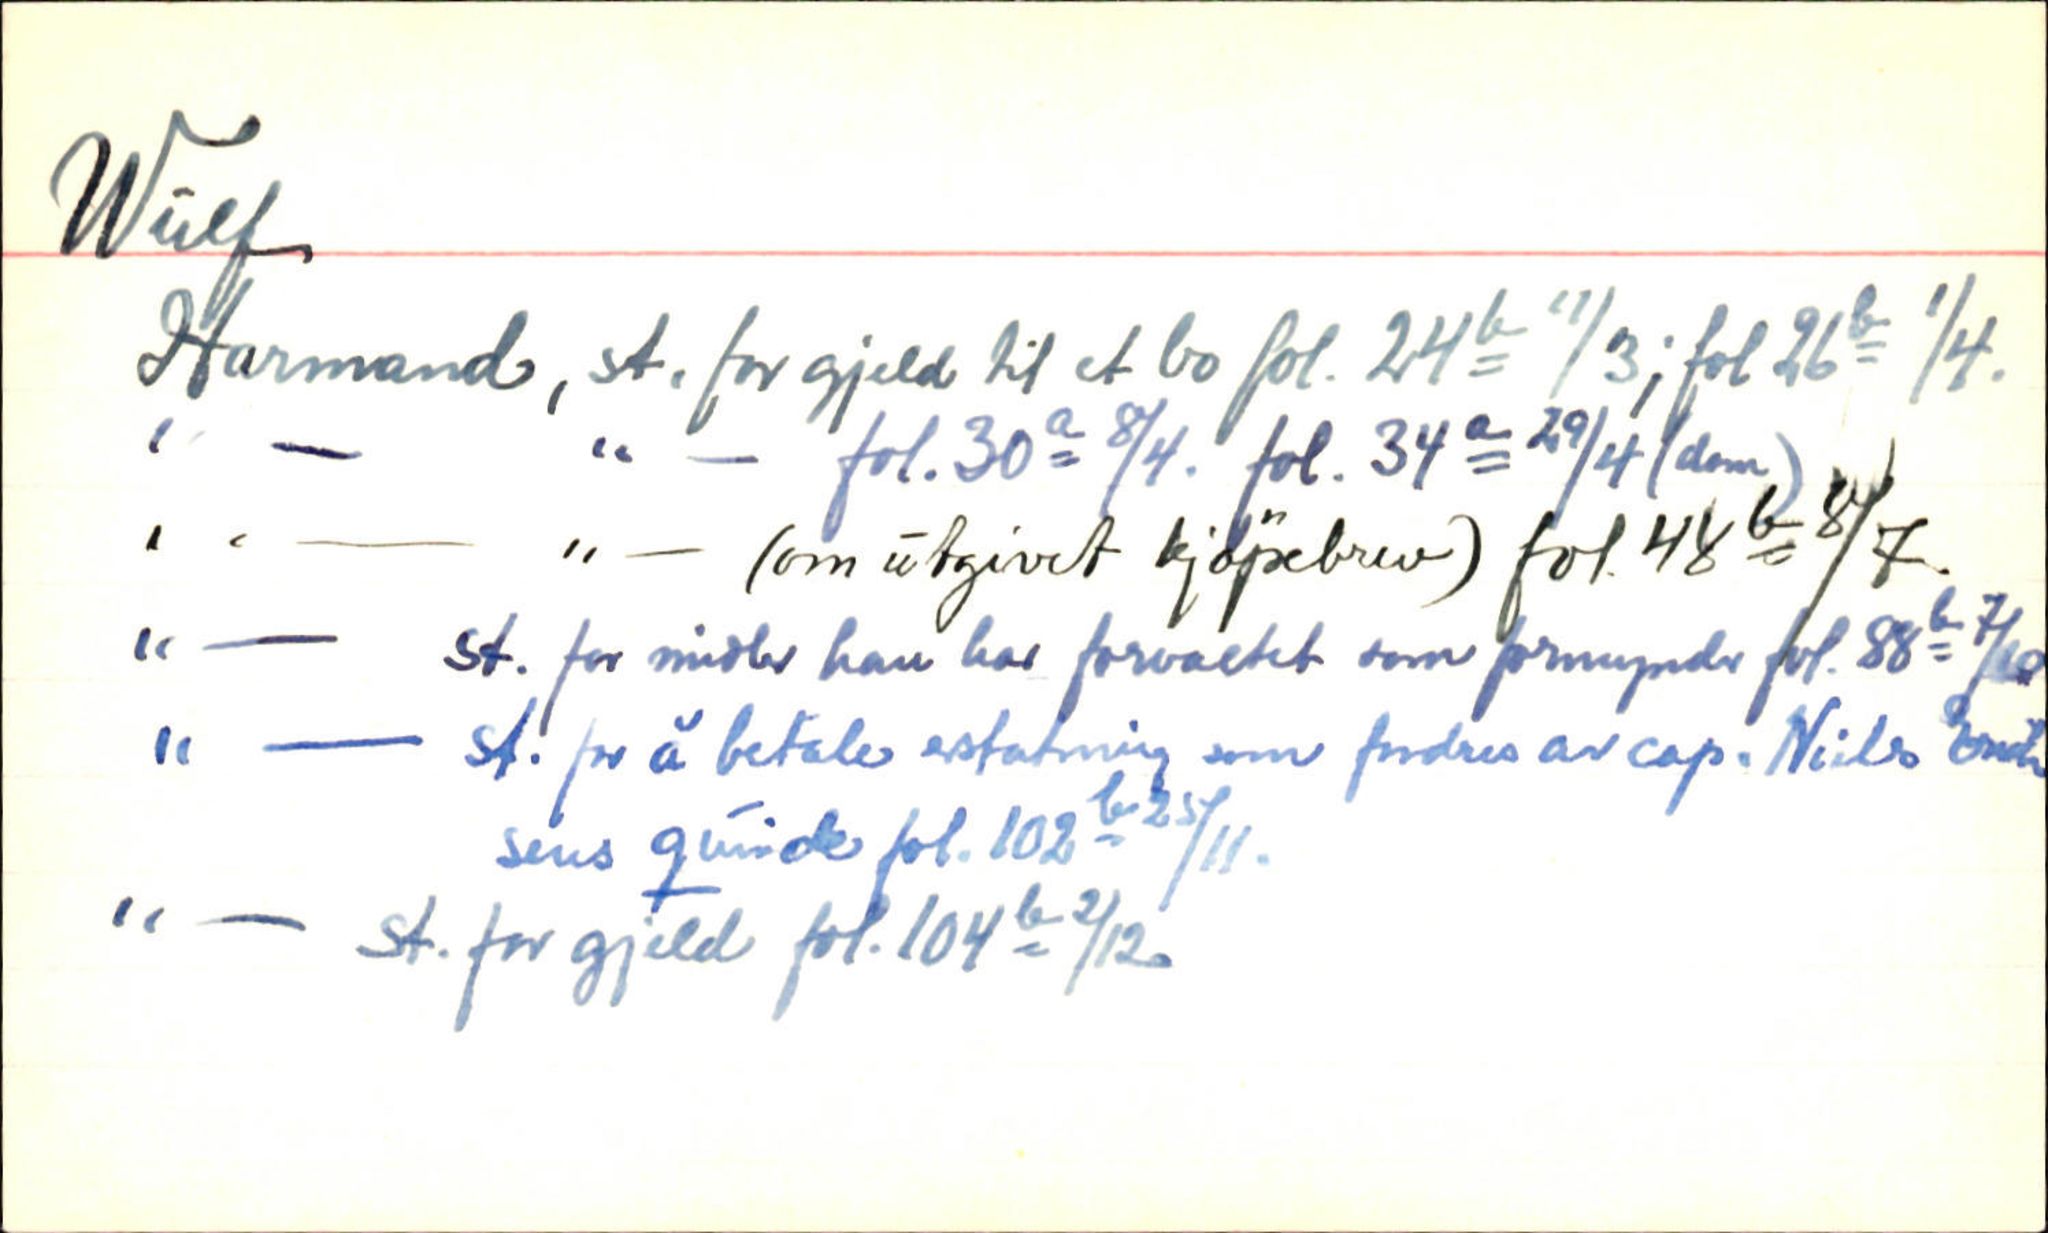 Wulf
Harmand, st. for gjeld til et bo fol. 24b 11/3; fol 26b 1/4.
" — " — fol. 30a 8/4. fol. 34a 29/4 (dom)
" " — " — (om utgivet kjöpebrev) fol. 48b 8/7.
" — st. for midler han har forvaltet som formynder fol. 88b 7/10
" — st. for å betale erstatning som fordres av cap. Niels
sens quinde fol. 102b 25/11.
" — st. for gjeld fol. 104b 2/12.